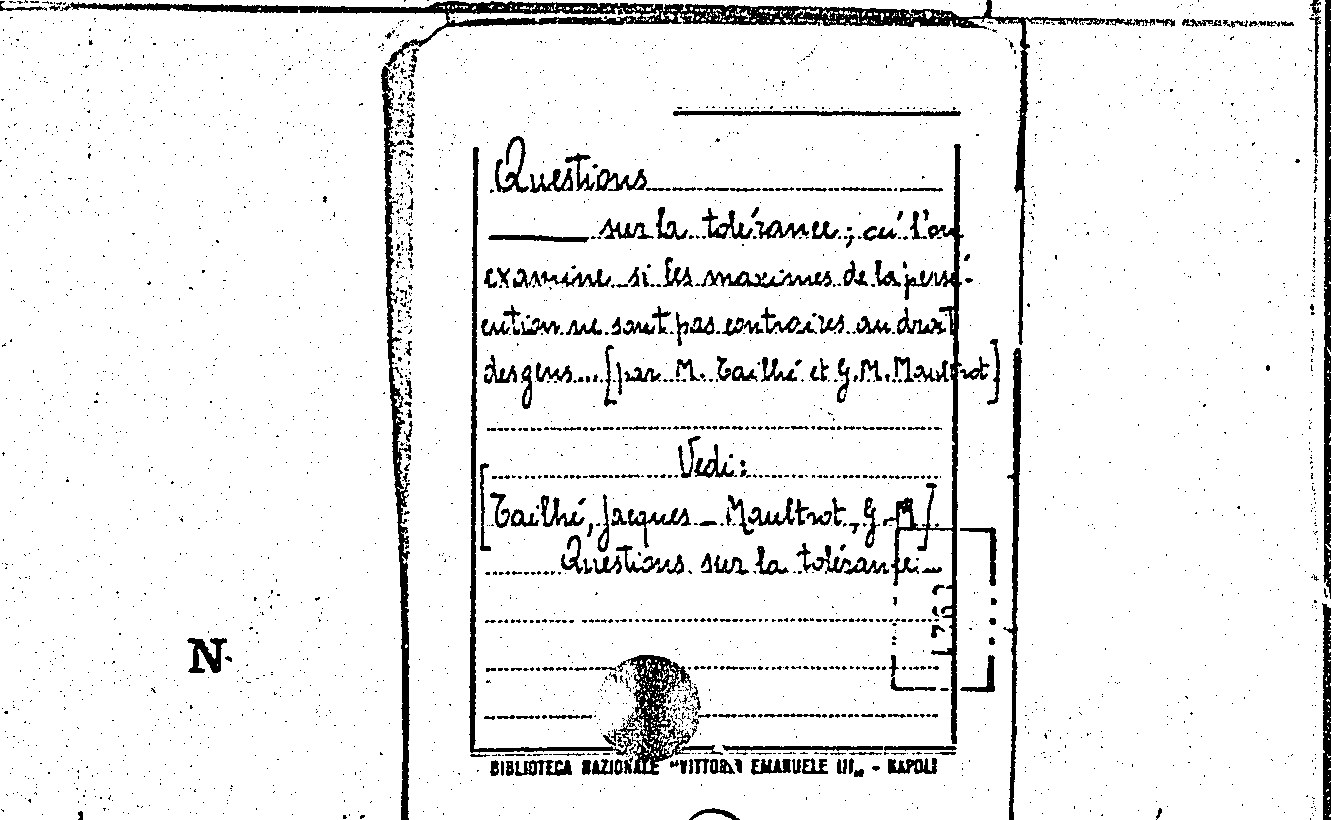 Questions
sur la tolérance; où l'on
examine si les maximes de la persé-
cution ne sont pas contraires au droit
des gens... [par M. Tailhé et G.M. Maultrot]
Vedi:
[Tailhé, Jacques - Maultrot, G.M.]
Questions sur la tolérance...
N.
BIBLIOTECA NAZIONALE "VITTORIO EMANUELE III" - NAPOLI